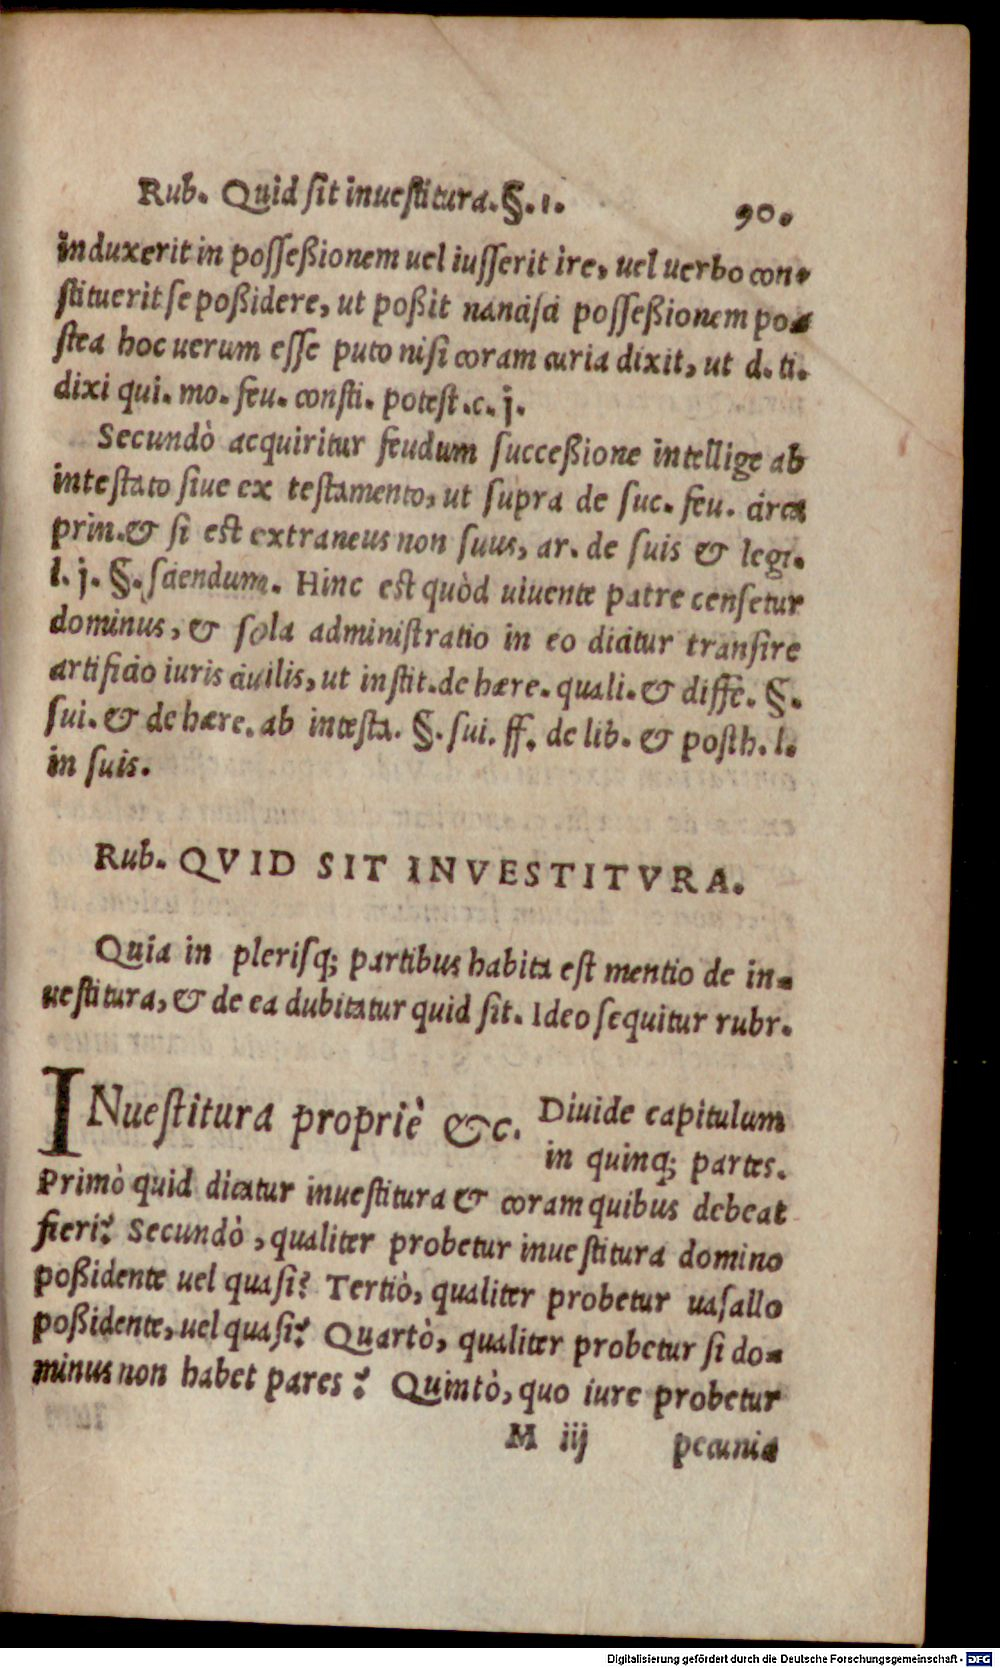 Rub. Quid sit inuestitura. §. 1. 90.
induxerit in posseßionem uel iusserit ire, uel uerbo con-
stituerit se poßidere, ut poßit nancisci posseßionem po-
stea hoc uerum esse puto nisi coram curia dixit, ut d. ti.
dixi qui. mo. feu. consti. potest. c. j.
Secundò acquiritur feudum succeßione intellige ab
intestato siue ex testamento, ut supra de suc. feu. circa
prin. & si est extraneus non suus, ar. de suis & legi.
l. j. §. sciendum. Hinc est quòd uiuente patre censetur
dominus, & sola administratio in eo dicitur transire
artificio iuris ciuilis, ut instit. de hære. quali. & diffe. §.
sui. & de hære. ab intesta. §. sui. ff. de lib. & posth. l.
in suis.
Rub. QVID SIT INVESTITVRA.
Quia in plerisq; partibus habita est mentio de in-
uestitura, & de ea dubitatur quid sit. Ideo sequitur rubr.
INuestitura propriè &c. Diuide capitulum
in quinq; partes.
Primò quid dicatur inuestitura & coram quibus debeat
fieri? Secundò, qualiter probetur inuestitura domino
poßidente uel quasi? Tertiò, qualiter probetur uasallo
poßidente, uel quasi? Quartò, qualiter probetur si do-
minus non habet pares? Quintò, quo iure probetur
M iij pecunia
Digitalisierung gefördert durch die Deutsche Forschungsgemeinschaft - DFG